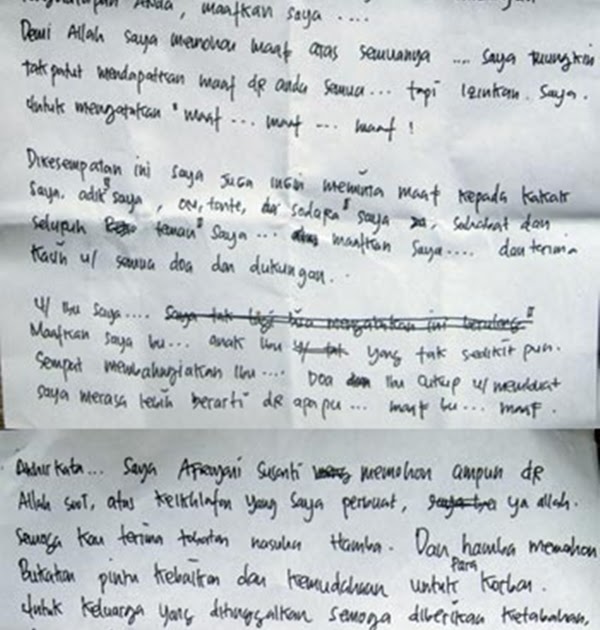 Anda, maafkan saya ....
Demi Allah saya memohon maaf atas semuanya .... saya mungkin
tak patut mendapatkan maaf dr anda semua... tapi izinkan saya.
Untuk mengatakan "maaf ... maaf ... maaf !
Dikesempatan ini saya juga ingin meminta maaf kepada kakak
saya, adik" saya, om, tante, dr sodara" saya, sahabat dan
seluruh teman" saya ... maafkan saya.... dan terima
kasih u/ semua doa dan dukungan.
u/ Ibu saya.... Saya tak bisa mengatakan ini berulang"
Maafkan saya bu... anak Ibu u/ tak yang tak sedikit pun.
Sempat membahagiakan Ibu.... Doa dan Ibu cukup u/ membuat
saya merasa lebih berarti dr apapu ... maaf bu... maaf.
Akhir kata... Saya Afriyani Susanti memohon ampun dr
Allah swt, atas kekhilafan yang saya perbuat, ya allah.
Semoga kau terima tobatan nasuha Hamba. Dan hamba memohon
Bukakan pintu kebaikan dan kemudahan untuk para korban.
Untuk keluarga yang ditinggalkan semoga diberikan ketabahan,